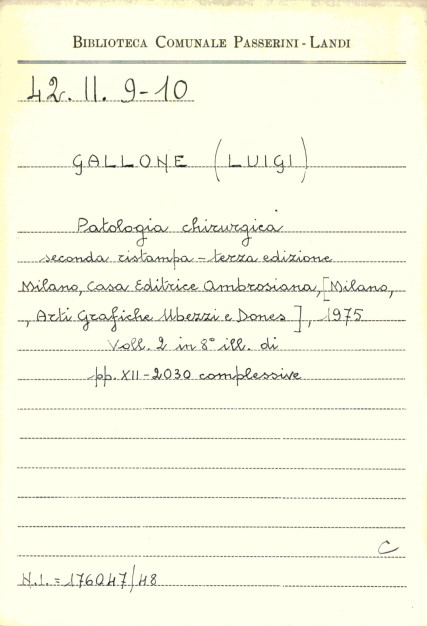 BIBLIOTECA COMUNALE PASSERINI - LANDI
42. II. 9-10
GALLONE (LUIGI)
Patologia chirurgica
seconda ristampa - terza edizione
Milano, Casa Editrice Ambrosiana, [Milano,
, Arti Grafiche Ubezzi e Dones], 1975
Voll. 2 in 8° ill. di
pp. XII - 2030 complessive
C
N.I. = 176047/48